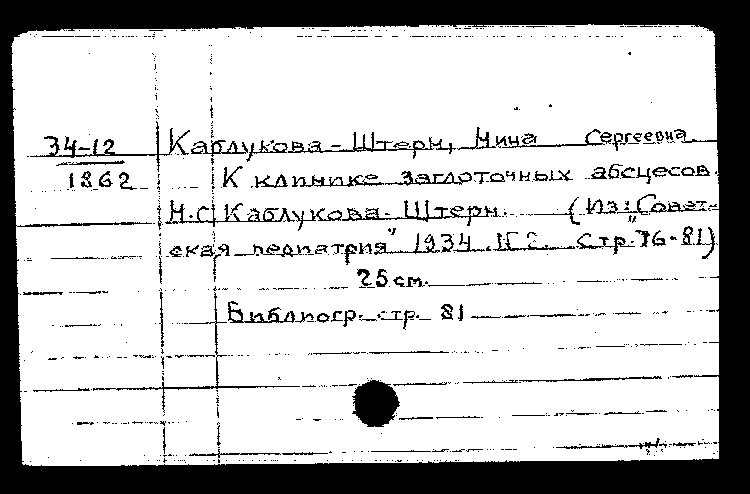 34-12 Каблукова-Штерн, Нина Сергеевна.
1862 К клинике заглоточных абсцесов.
Н.С. Каблукова-Штерн. (Из: „Совет-
ская педиатрия" 1934. № 2. Стр. 76-81)
25 см.
Библиогр. стр. 81